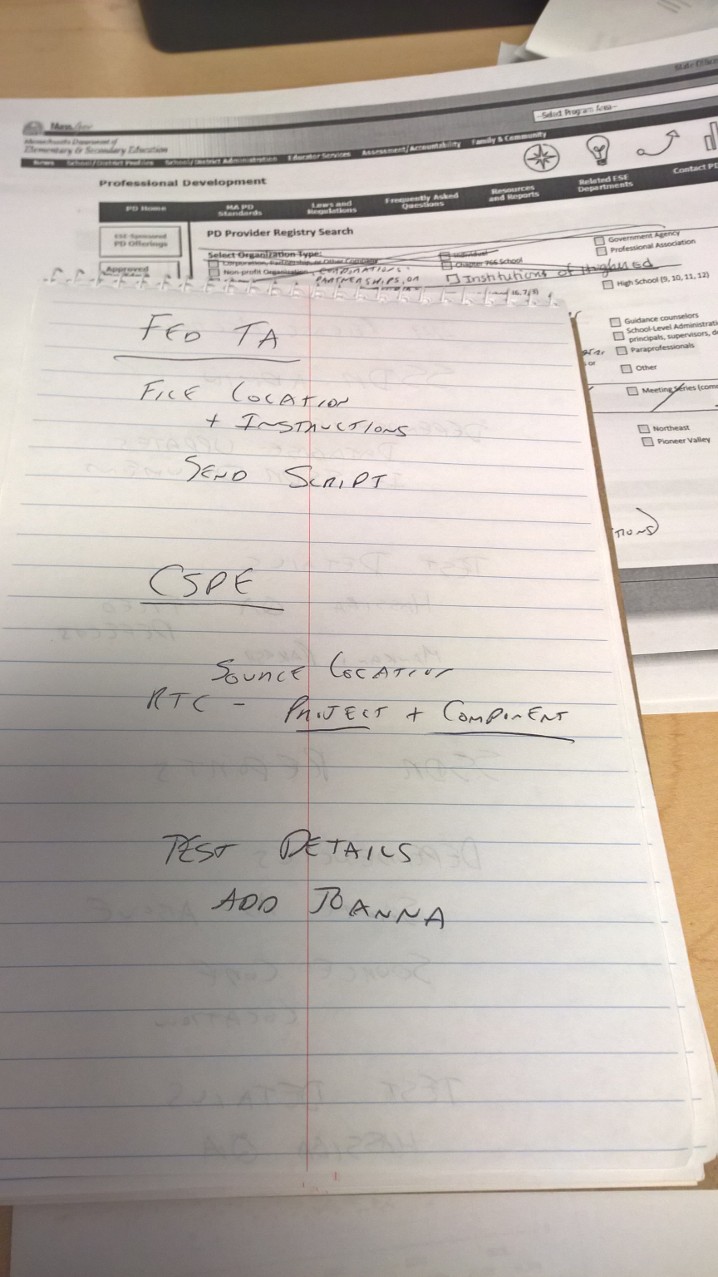 Mass.Gov
Massachusetts Department of
Elementary & Secondary Education
--Select Program Area--
News School/District Profiles School/District Administration Educator Services Assessment/Accountability Family & Community
Professional Development
PD Home MA PD Standards Laws and Regulations Frequently Asked Questions Resources and Reports Related ESE Departments Contact PD
ESE-Sponsored
PD Offerings
Approved
PD Provider Registry Search
Select Organization Type:
Corporation, Partnership, or Other Company
Individual
Government Agency
Non-profit Organization
Chapter 766 School
Professional Association
CORPORATIONS,
PARTNERSHIPS, OR
Institutions of HigherEd
High School (9, 10, 11, 12)
Guidance counselors
School-Level Administrat
principals, supervisors, d
Paraprofessionals
or
Other
Meeting Series (com
Northeast
Pioneer Valley
TIONS)
FED TA
FILE LOCATION
+ INSTRUCTIONS
SEND SCRIPT
CSPE
SOURCE LOCATION
RTC - PROJECT + COMPONENT
TEST DETAILS
ADD JOANNA